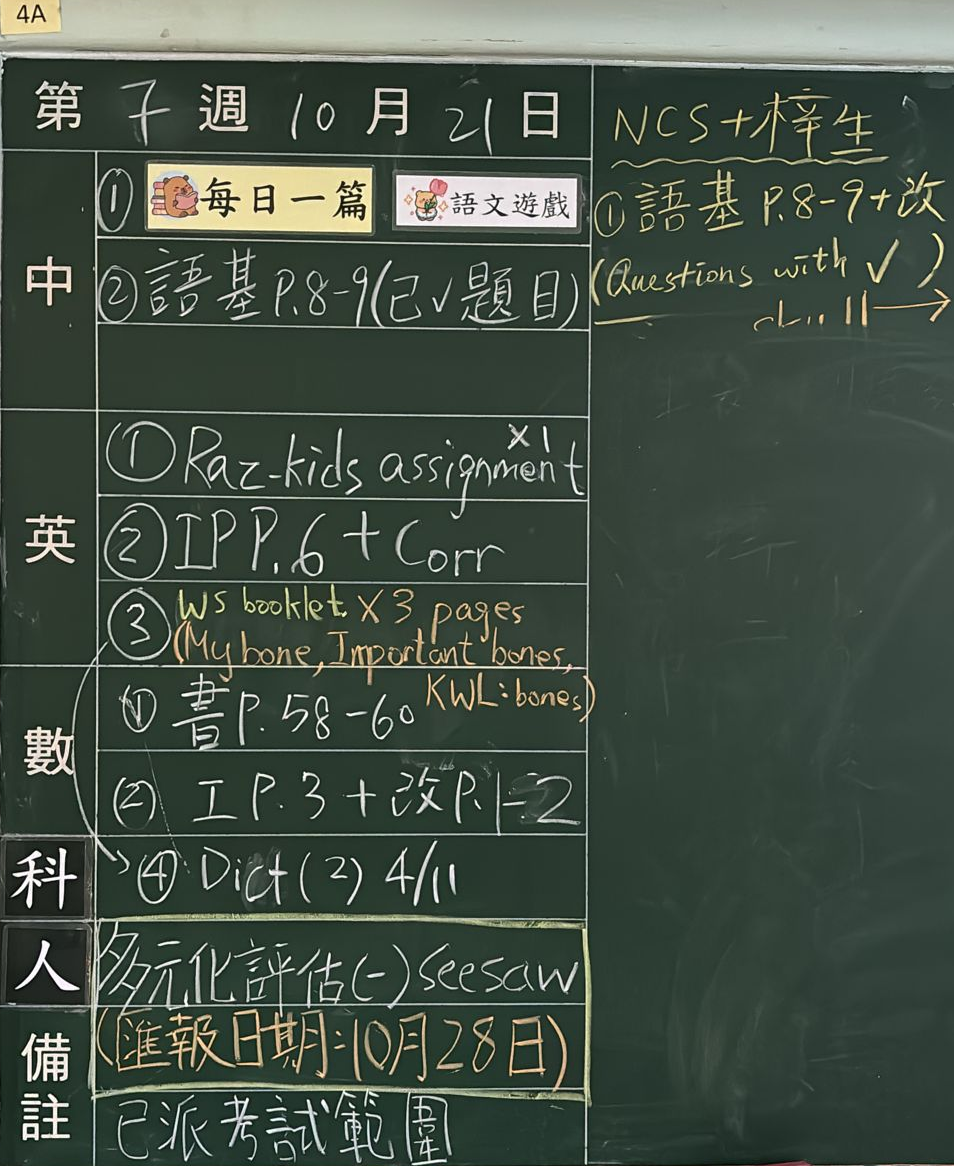 4A
第 7 週 10 月 21 日
中
① 每日一篇 語文遊戲
② 語基 P.8-9(已✓題目)
英
① Raz-kids assignment ×1
② IP P.6 + Corr
③ WS booklet ×3 pages
(My bone, Important bones,
KWL: bones)
數
① 書 P.58-60
② 工 P.3 + 改 P.1-2
科
④ Dict (2) 4/11
人
多元化評估(一) seesaw
備註
(匯報日期:10月28日)
已派考試範圍
NCS+梓生
① 語基 P.8-9+改
(Questions with ✓)